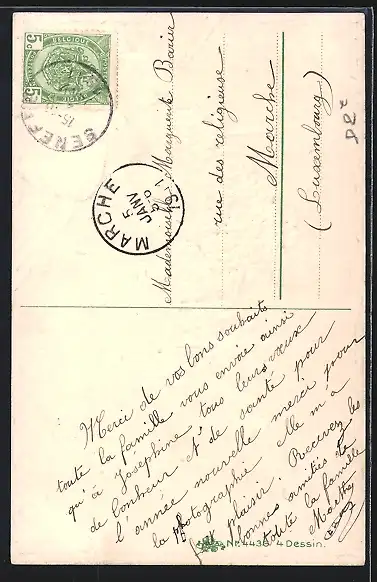 5c BELGIQUE 5c
SENEFFE
15
MARCHE
5
JANV
6-8
1911
Mademoiselle Marguerite Barier
rue des religieuse
Marche
(Luxembourg)
Merci de vos bons souhaits
toute la famille vous envoie ainsi
qu'à Joséphine tous leurs vœux
de bonheur et de santé pour
l'année nouvelle merci pour
la photographie elle m'a
fait plaisir. Recevez les
bonnes amitiés de
toute la famille
Marthe
Nr. 4438 4 Dessin.